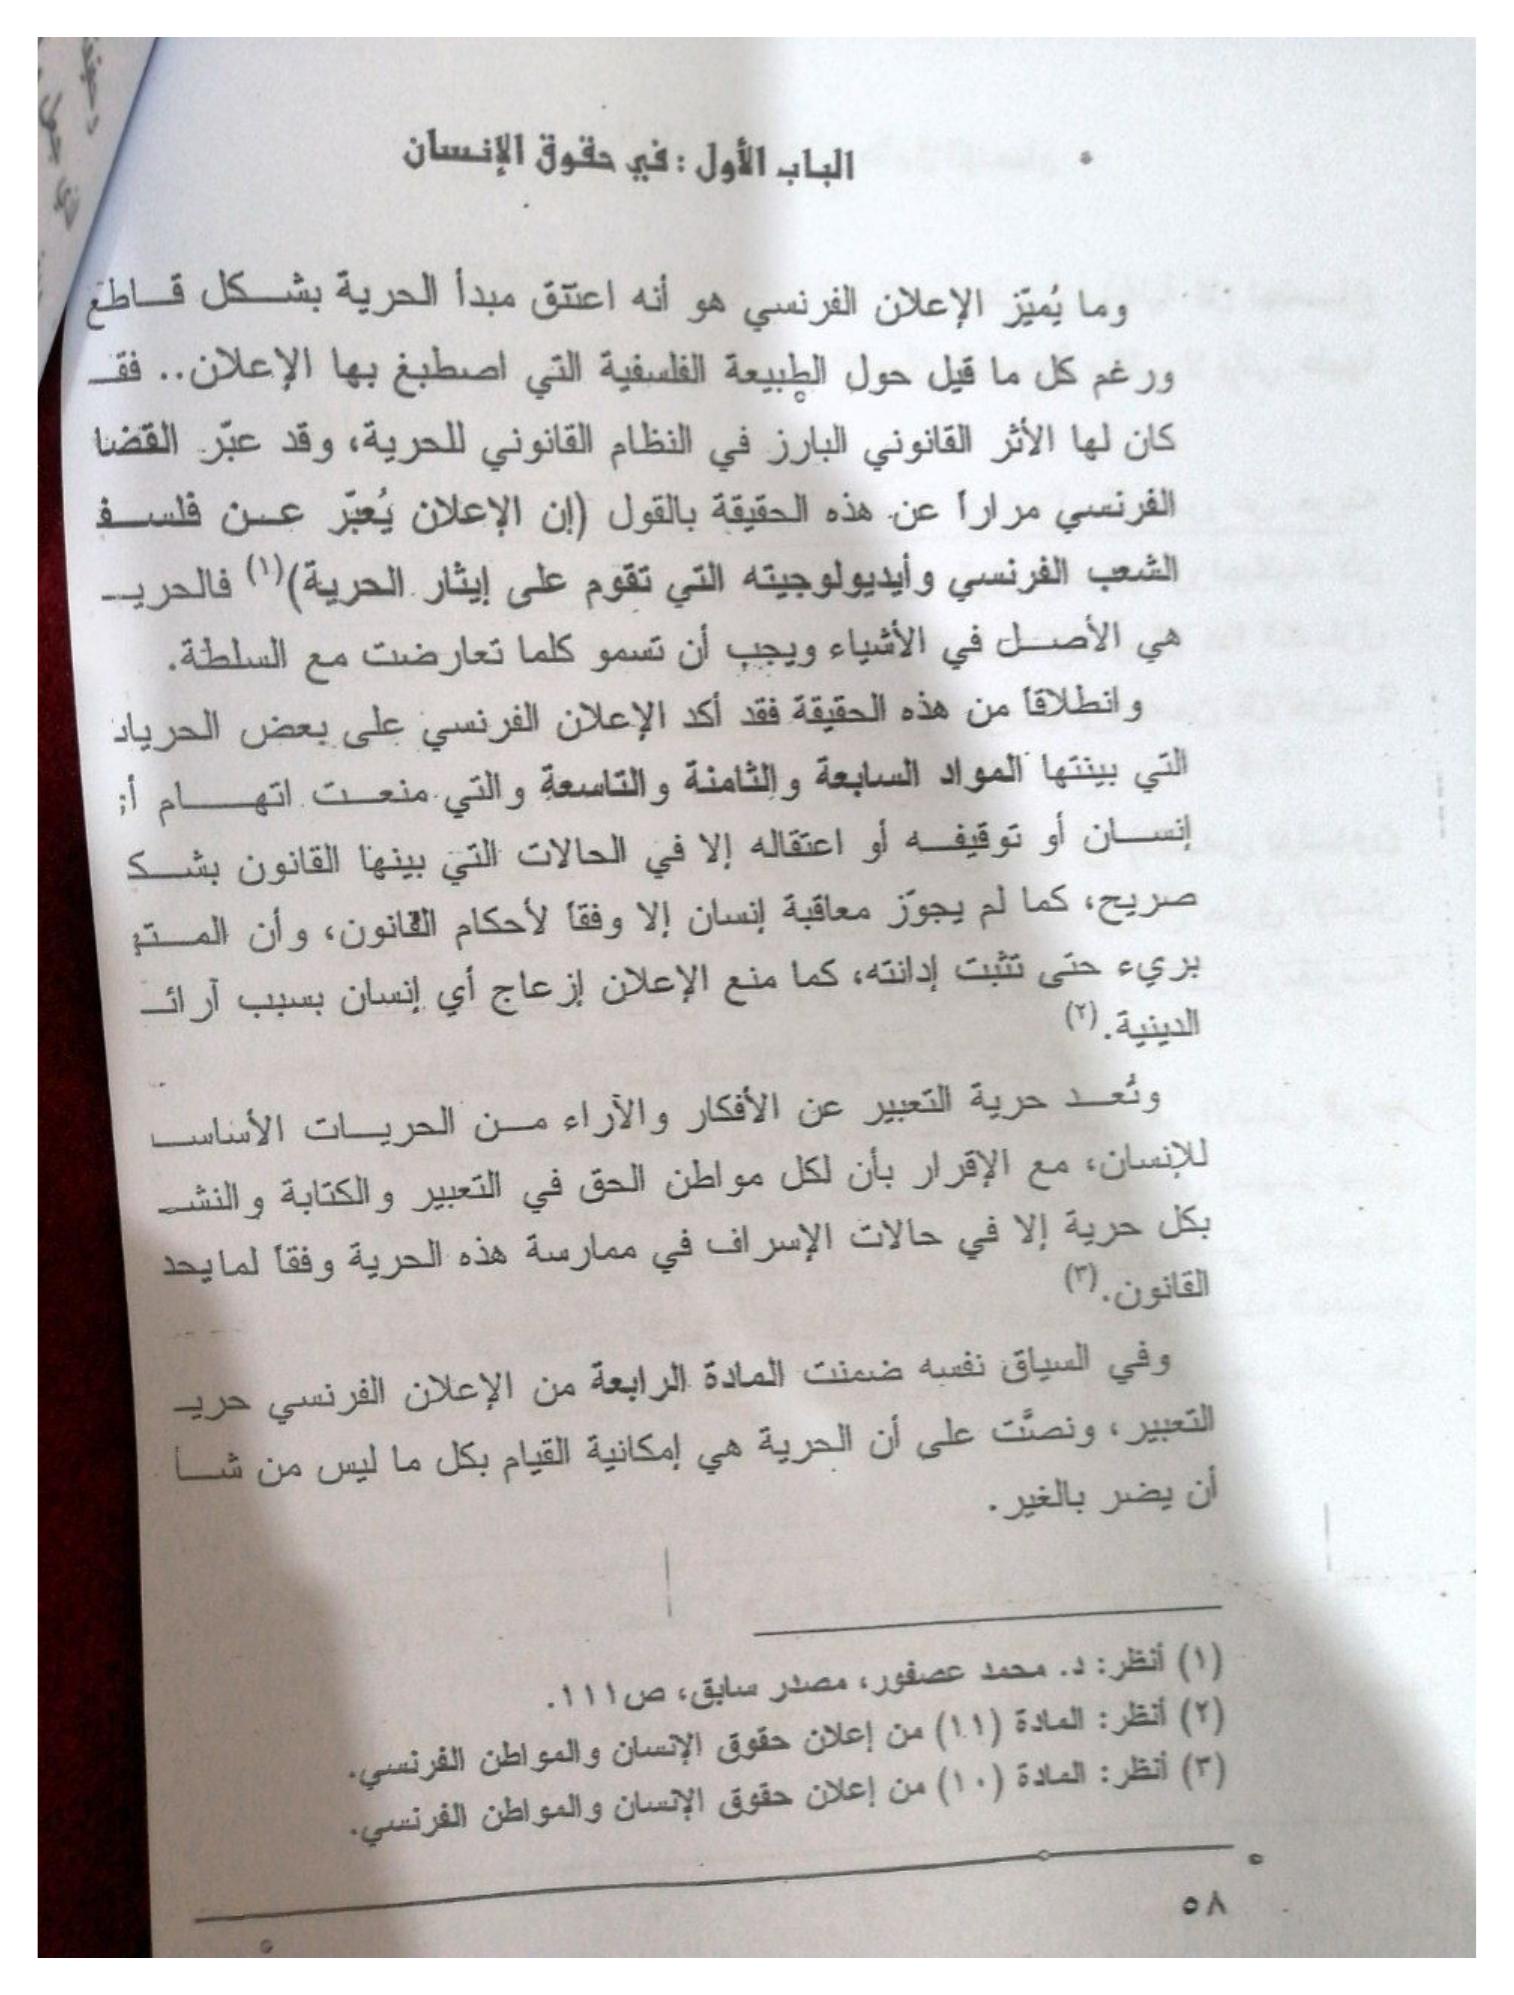 الباب الأول : في حقوق الإنسان
وما يُميّز الإعلان الفرنسي هو أنه اعتنق مبدأ الحرية بشكل قاطع
ورغم كل ما قيل حول الطبيعة الفلسفية التي اصطبغ بها الإعلان.. فقـ
كان لها الأثر القانوني البارز في النظام القانوني للحرية، وقد عبّر القضا
الفرنسي مراراً عن هذه الحقيقة بالقول (إن الإعلان يُعبّر عن فلسفـ
الشعب الفرنسي وأيديولوجيته التي تقوم على إيثار الحرية)(١) فالحريـ
هي الأصل في الأشياء ويجب أن تسمو كلما تعارضت مع السلطة.
وانطلاقاً من هذه الحقيقة فقد أكد الإعلان الفرنسي على بعض الحريات
التي بينتها المواد السابعة والثامنة والتاسعة والتي منعت اتهام أ
إنسان أو توقيفه أو اعتقاله إلا في الحالات التي بينها القانون بشكـ
صريح، كما لم يجوّز معاقبة إنسان إلا وفقاً لأحكام القانون، وأن المتهـ
بريء حتى تثبت إدانته، كما منع الإعلان إزعاج أي إنسان بسبب آرائـ
الدينية.(٢)
وتُعد حرية التعبير عن الأفكار والآراء من الحريات الأساسـ
للإنسان، مع الإقرار بأن لكل مواطن الحق في التعبير والكتابة والنشـ
بكل حرية إلا في حالات الإسراف في ممارسة هذه الحرية وفقاً لمايحد
القانون.(٣)
وفي السياق نفسه ضمنت المادة الرابعة من الإعلان الفرنسي حريـ
التعبير، ونصَّت على أن الحرية هي إمكانية القيام بكل ما ليس من شأ
أن يضر بالغير.
(١) أنظر: د. محمد عصفور، مصدر سابق، ص١١١.
(٢) أنظر: المادة (١١) من إعلان حقوق الإنسان والمواطن الفرنسي.
(٣) أنظر: المادة (١٠) من إعلان حقوق الإنسان والمواطن الفرنسي.
٥٨